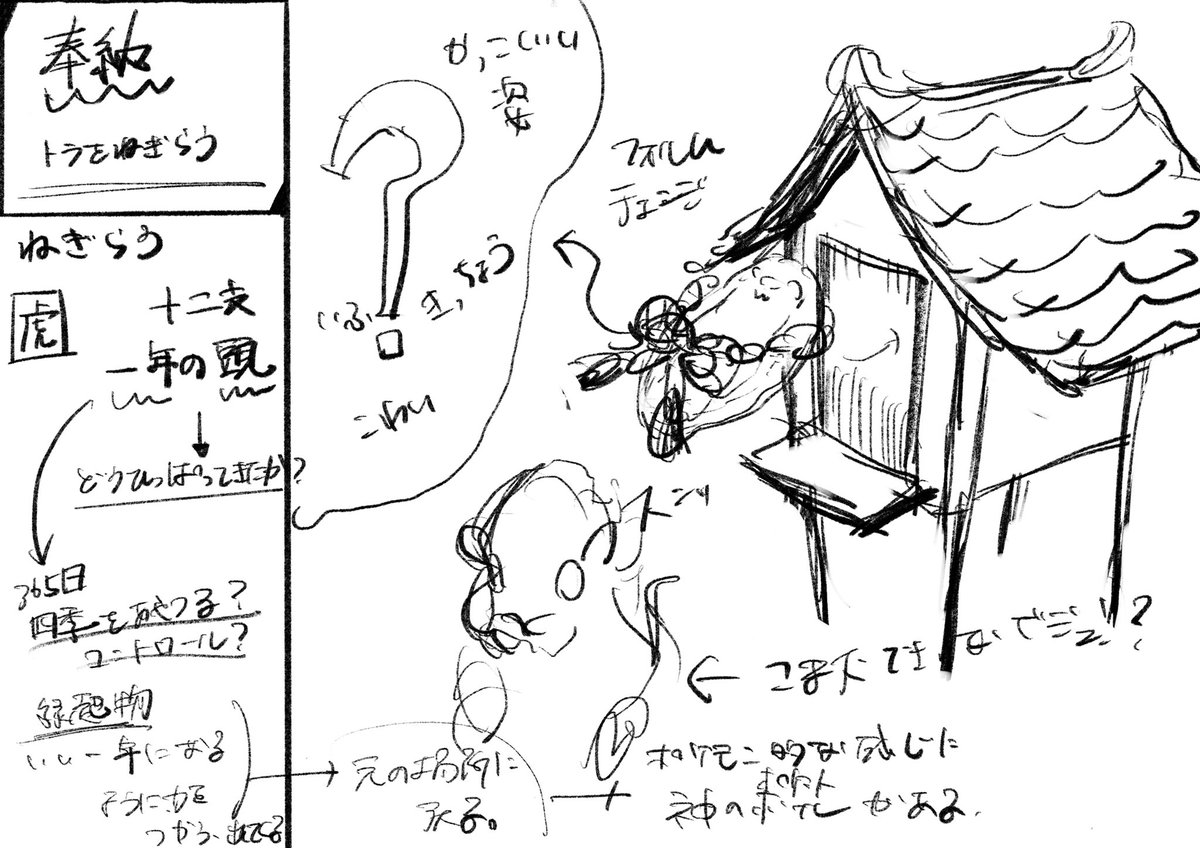 奉納
トラをねぎらう
ねぎらう
虎
十二支
一年の頭
どうひっぱってきたか?
365日
四季を司つる?
コントロール?
縁起物
いい一年になる
ように力を
つかう、
元の場所に
戻る。
かっこいい
姿
いふ
きっちょう
こわい
フォルム
チェンジ
ドンッ
こま犬てきなデジン?
ポケモン的な感じに
神の
がある。